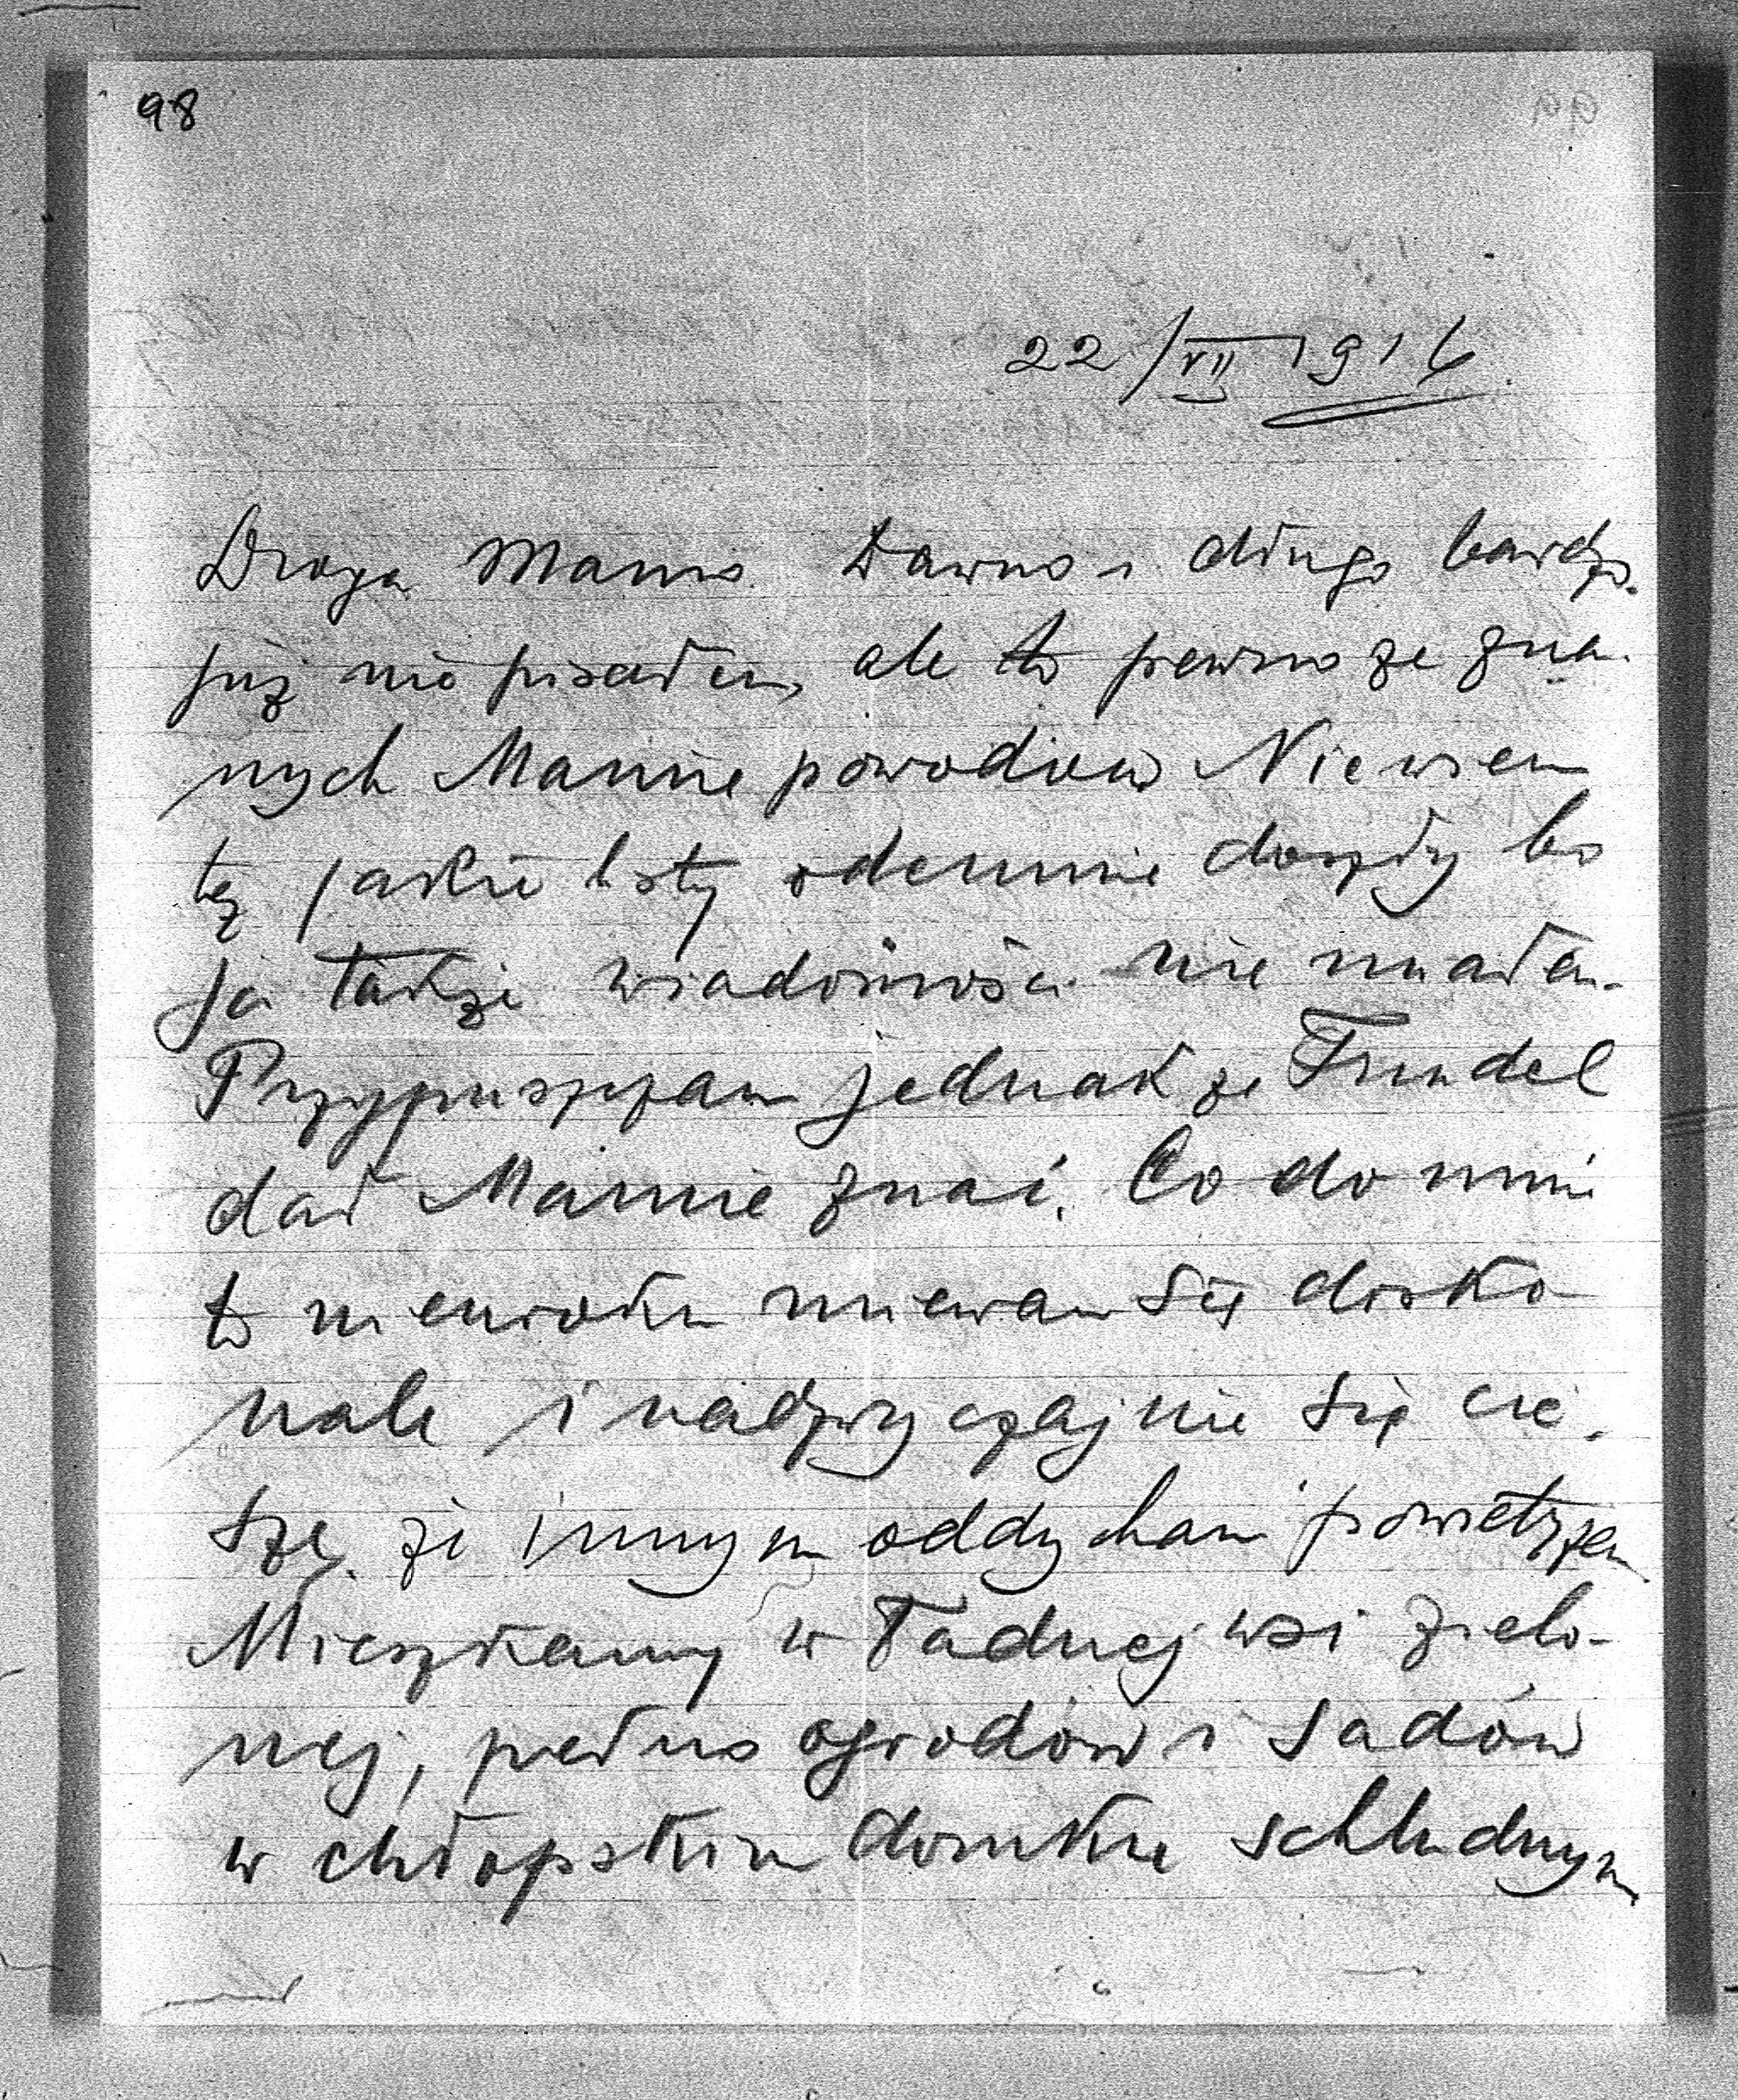 98
22/VII 1916
Droga Mamo Dawno i długo bardzo
już nie pisałem, ale to pewno ze zna-
nych Mamie powodów Nie wiem
też jakie listy odemnie doszły bo
ja także wiadomości nie miałem.
Przypuszczam jednak że Trudel
dał Mamie znać. Co do mnie
to niewiem miewam się dosko
nale i nadzwyczajnie się cie-
szę, że innym oddycham powietrzem
Mieszkamy w ładnej wsi zielo-
nej, pełno ogrodów i sadów
w chłopskim domku schludnym